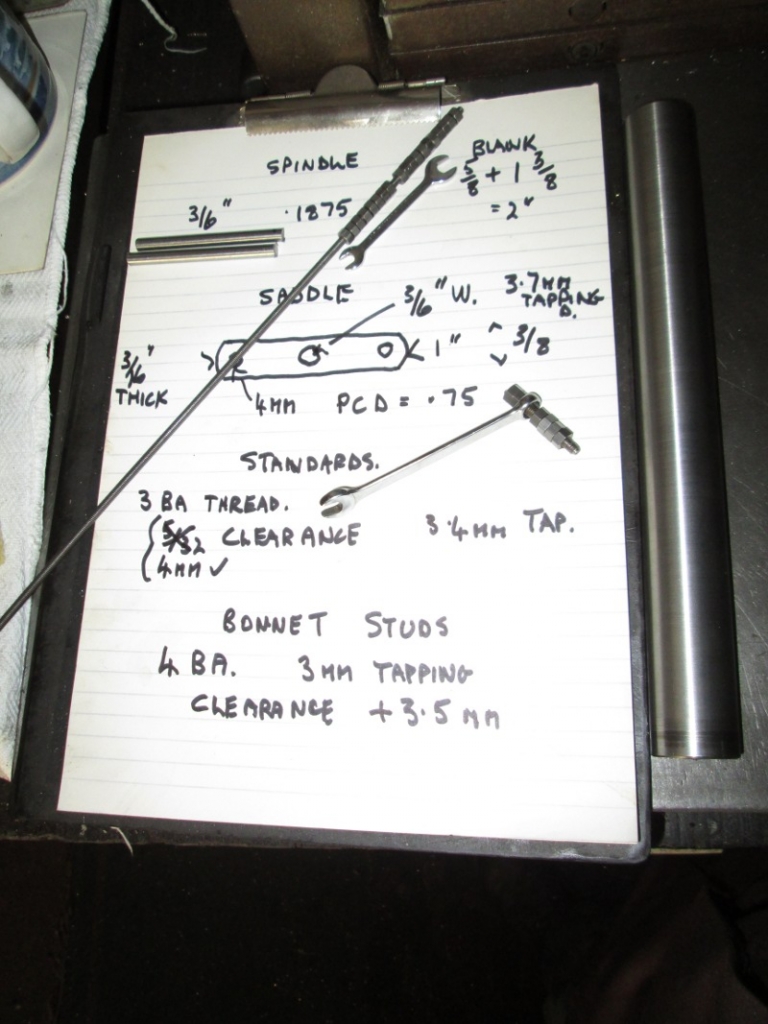 SPINDLE
BLANK
5/8 + 1 3/8
= 2"
3/16" .1875
SADDLE
3/16" W. 3.7MM
TAPPING
D.
3/16"
THICK
1" 3/8
4MM PCD = .75
STANDARDS.
3 BA THREAD.
5/32 CLEARANCE 3.4MM TAP.
4MM ✓
BONNET STUDS
4 BA. 3MM TAPPING
CLEARANCE + 3.5 MM